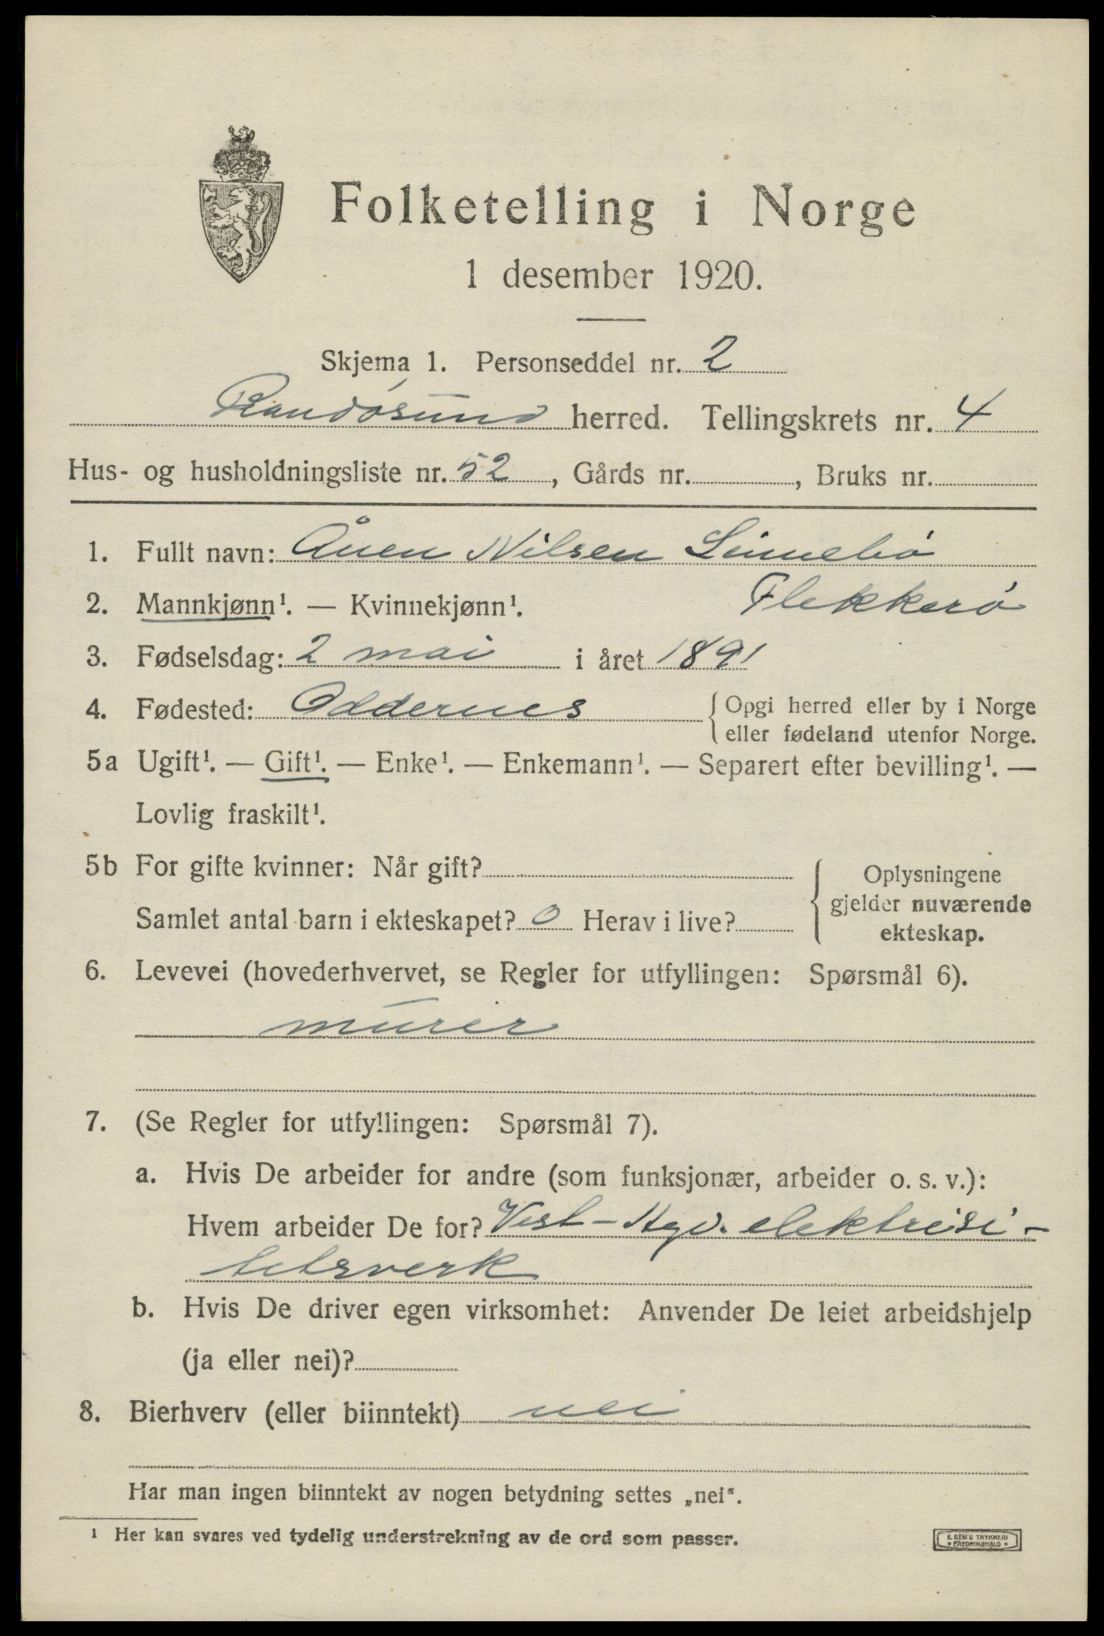 Folketelling i Norge
1 desember 1920.
Skjema 1. Personseddel nr. 2
Randøsund herred. Tellingskrets nr. 4
Hus- og husholdningsliste nr. 52, Gårds nr. , Bruks nr.
1. Fullt navn: Ånen Nilsen Linnebø
2. Mannkjønn¹. — Kvinnekjønn¹. Flekkerø
3. Fødselsdag: 2 mai i året 1891
4. Fødested: Oddernes { Opgi herred eller by i Norge
eller fødeland utenfor Norge.
5a Ugift¹. — Gift¹. — Enke¹. — Enkemann¹. — Separert efter bevilling¹. —
Lovlig fraskilt¹.
5b For gifte kvinner: Når gift? { Oplysningene
gjelder nuværende
Samlet antal barn i ekteskapet? 0 Herav i live?
ekteskap.
6. Levevei (hovederhvervet, se Regler for utfyllingen: Spørsmål 6).
murer
7. (Se Regler for utfyllingen: Spørsmål 7).
a. Hvis De arbeider for andre (som funksjonær, arbeider o. s. v.):
Hvem arbeider De for? Vest-Agd. elektrisi-
tetsverk
b. Hvis De driver egen virksomhet: Anvender De leiet arbeidshjelp
(ja eller nei)?
8. Bierhverv (eller biinntekt) nei
Har man ingen biinntekt av nogen betydning settes „nei“.
¹ Her kan svares ved tydelig understrekning av de ord som passer.
E. SEM'S TRYKKERI
• FREDRIKSHALD •